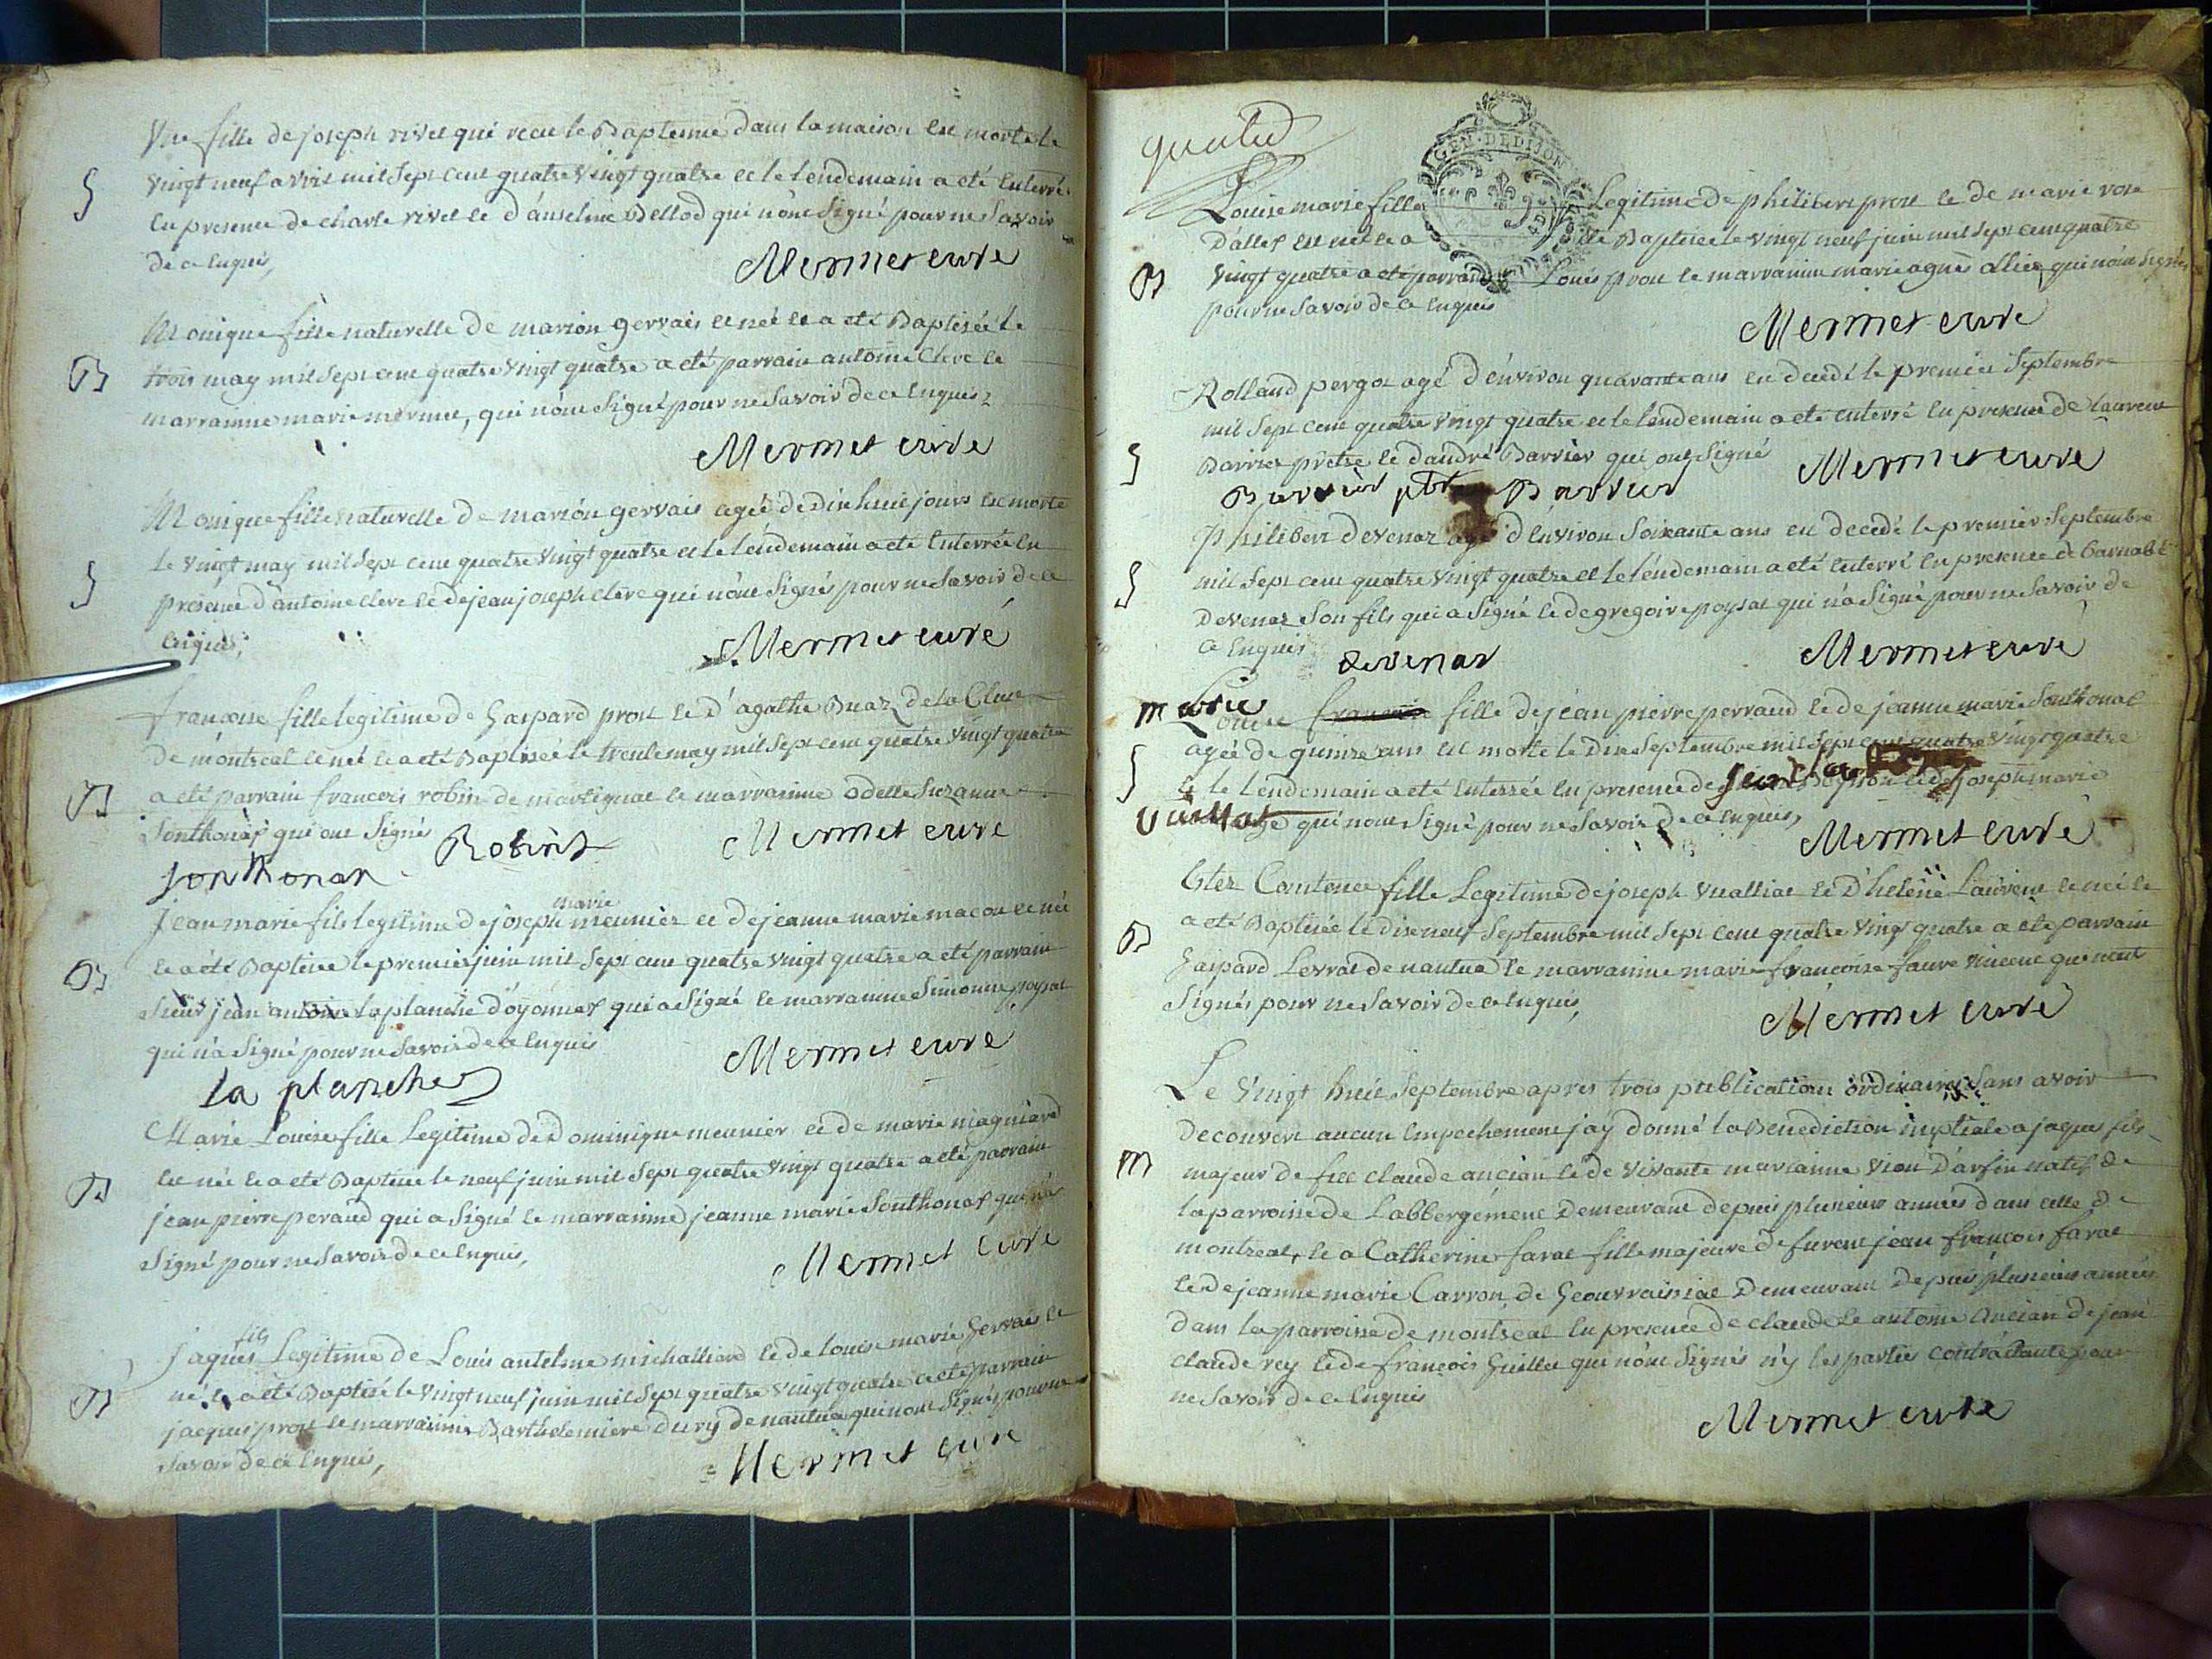 Une fille de joseph rivet qui recu le Bapteme dans la maison est morte le
vingt neuf avril mil Sept cent quatre vingt quatre et le lendemain a eté enterré
en presence de charle rivet et d'anselme Bellod qui n'ont Signé pour ne Savoir
de ce enquis,
Mermet curé
Monique fille naturelle de marion gervais est neé et a eté Baptiseé le
trois may mil Sept cent quatre vingt quatre a eté parrain antoine Clerc et
marrainne marie mermet, qui n'ont Signé pour ne Savoir de ce enquis
Mermet curé
Monique fille naturelle de marion gervais ageé de Dix huit jours est morte
le vingt may mil Sept cent quatre vingt quatre et le lendemain a eté enterreé en
presence d'antoine clerc et de jean joseph clerc qui n'ont Signés pour ne Savoir de ce
enquis,
Mermet curé
francoise fille legitime de Gaspard prost et d'agathe Buaz de la Cluse
de montreal est neé et a eté Baptiseé le trente may mil Sept cent quatre vingt quatre
a eté parrain francois robin de martignat et marrainne odelle Suzanne
Sonthonax qui ont Signés
Robin
Mermet curé
Sonthonax
marie
Jean marie fils legitime de joseph meunier et de jeanne marie macon est né
et a eté Baptisé le premier juin mil Sept cent quatre vingt quatre a eté parrain
Sieur jean antoine laplanche d'oyonnax qui a Signé et marrainne Simonne poysat
qui n'a Signé pour ne Savoir de ce enquis
Mermet curé
la planche
Marie Louise fille Legitime de Dominique meunier et de marie magniard
est neé et a eté Baptisee le neuf juin mil Sept quatre vingt quatre a eté parrain
jean pierre peraud qui a Signé et marrainne jeanne marie Sonthonax qui n'a
Signé pour ne Savoir de ce enquis,
Mermet curé
fils
Jaques Legitime de Louis antelme michalliard et de louise marie Gervais est
né et a eté Baptisé le vingt neuf juin mil Sept quatre vingt quatre a eté parrain
jacques prost et marrainne Barthelemiere Dury de nantua qui n'ont Signés pour ne
Savoir de ce enquis,
Mermet curé
GEN. DE DIJON
Louise marie fille Legitime de philibert prost et de marie rose
D'allex est neé et a eté Baptisee le vingt neuf juin mil Sept cent quatre
vingt quatre a eté parrain Louis prost et marrainne marie agnes allex qui n'ont Signés
pour ne Savoir de ce enquis
Mermet curé
Rolland pergot agé d'environ quarante ans est decedé le premier Septembre
mil Sept cent quatre vingt quatre et le lendemain a eté enterré en presence de laurent
Barrier prêtre et d'andré Barrier qui ont Signé
Mermet curé
Barrier ptre Barrier
Philibert Devenaz agé d'environ Soixante ans est decedé le premier Septembre
mil Sept cent quatre vingt quatre et le lendemain a eté enterré en presence de Barnabé
Devenaz Son fils qui a Signé et de gregoire poysat qui n'a Signé pour ne Savoir de
ce enquis
devenaz
Mermet curé
marie
Louise francoise fille de jean pierre perraud et de jeanne marie Sonthonax
ageé de quinze ans est morte le Dix Septembre mil Sept cent quatre vingt quatre
et le lendemain a eté enterreé en presence de jean claude et de joseph marie
Vuillat qui n'ont Signé pour ne Savoir de ce enquis,
Mermet curé
Constance fille Legitime de joseph Vualliat et D'heleine Laurent est neé et
a eté Baptiseé le dixneuf Septembre mil Sept cent quatre vingt quatre a eté parrain
Gaspard Levrat de nantua et marrainne marie francoise faure vincent qui n'ont
Signés pour ne Savoir de ce enquis,
Mermet curé
Le vingt huit Septembre apres trois publications ordinaires Sans avoir
decouvert aucun empechement j'aÿ donné la Benediction nuptiale a jaques fils
majeur de feu claude ancian et de vivante marianne vion D'arfin natif de
la parroisse de Labbergement Demeurant depuis plusieurs années dans celle de
montreal, et a Catherine farat fille majeure de furent jean francois farat
et de jeanne marie Carron de Geovraissiat Demeurant depuis plusieurs années
dans la parroisse de montreal en presence de claude et antoine ancian de jean
claude rey et de francois Guillet qui n'ont Signés n'y les parties contractantes pour
ne Savoir de ce enquis
Mermet curé